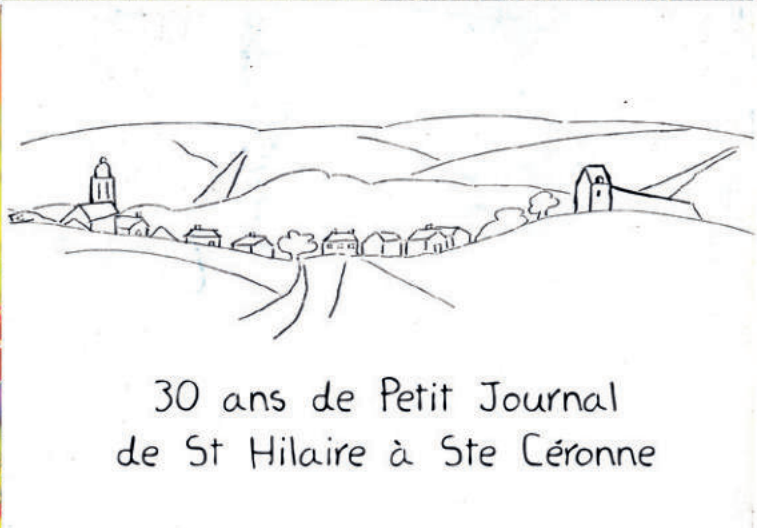 30 ans de Petit Journal
de St Hilaire à Ste Céronne